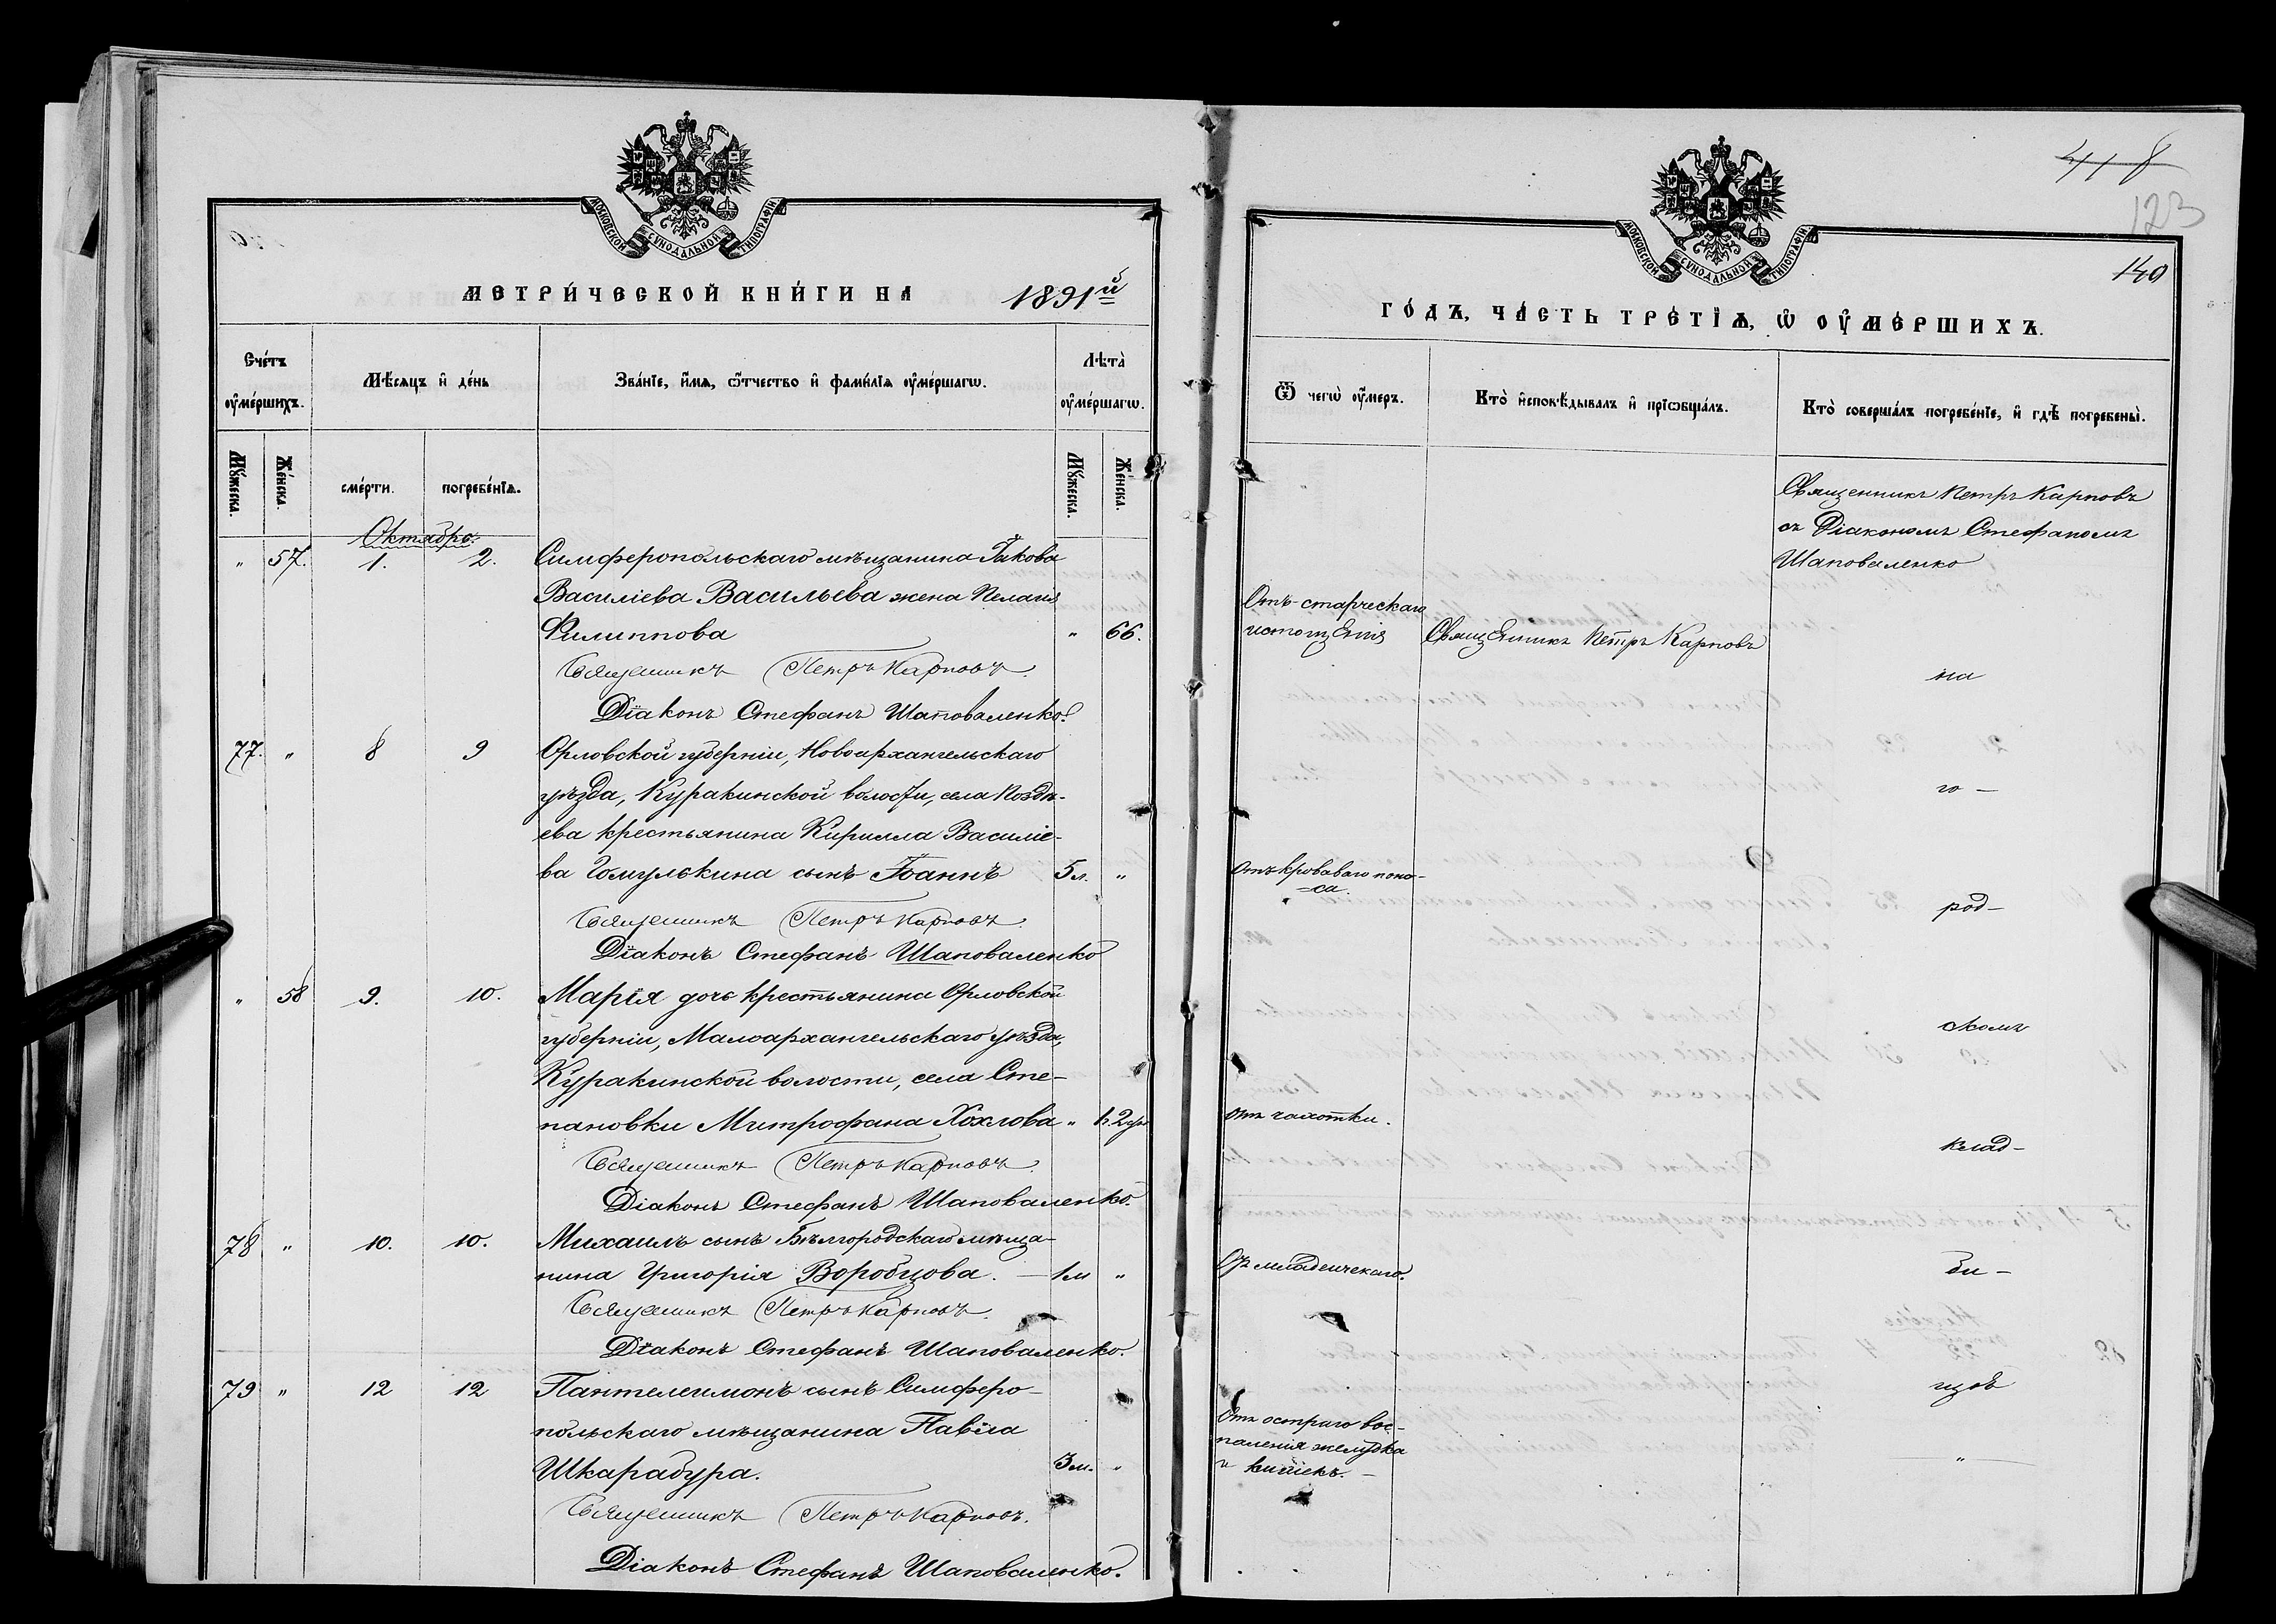 МОСКОВСКОЙ СѴНОДАЛЬНОЙ ТИПОГРАФІИ
МЕТРИ́ЧЕСКОЙ КНИ́ГИ НА 1891й
Сче́тъ ᲂу҆ме́ршихъ.
Мѣ́сяцъ и҆ де́нь
Зва́нїе, и҆́мѧ, ѻ҆́тчество и҆ фами́лїѧ ᲂу҆ме́ршагѡ.
Лѣ́та ᲂу҆ме́ршагѡ.
Мꙋ́жеска.
Же́нска.
сме́рти.
погребе́нїѧ.
Мꙋ́жеска.
Же́нска.
Октябрь.
" 57. 1. 2. Симферопольскаго мѣщанина Іакова
Василіева Васильева жена Пелагія
Филиппова " 66.
Священникъ Петръ Карповъ.
Діаконъ Стефанъ Шаповаленко.
77. " 8 9 Орловской губерніи, Новоархангельскаго
уѣзда, Куракинской волости, села Поздѣ-
ева крестьянина Кирилла Василіе-
ва Гомулькина сынъ Іоаннъ 5 л. "
Священникъ Петръ Карповъ.
Діаконъ Стефанъ Шаповаленко
" 58 9. 10. Марія дочь крестьянина Орловской
губерніи, Малоархангельскаго уѣзда,
Куракинской волости, села Сте-
пановки Митрофана Хохлова "
Священникъ Петръ Карповъ.
Діаконъ Стефанъ Шаповаленко.
78 " 10. 10. Михаилъ сынъ Бѣлгородскаго мѣща-
нина Григорія Воробцова. — 1 м "
Священникъ Петръ Карповъ.
Діаконъ Стефанъ Шаповаленко.
79 " 12 12 Пантелеимонъ сынъ Симферо-
польскаго мѣщанина Павла
Шкарабура. 3 м. "
Священникъ Петръ Карповъ.
Діаконъ Стефанъ Шаповаленко.
418
123
140
МОСКОВСКОЙ СѴНОДАЛЬНОЙ ТИПОГРАФІИ
ГО́ДЪ, ЧА́СТЬ ТРЕ́ТЇѦ, Ѡ҆ ОУ҆МЕ́РШИХЪ.
Ѿ чегѡ̀ ᲂу҆́меръ.
Кто̀ и҆сповѣ́дывалъ и҆ прїѡбща́лъ.
Кто̀ соверша́лъ погребе́нїе, и҆ гдѣ̀ погребены̀.
Священникъ Петръ Карповъ
съ Діакономъ Стефаномъ
Шаповаленко
Отъ старческаго
истощенія Священникъ Петръ Карповъ
на
го —
Отъ кроваваго поно-
=са.
род-
скомъ
отъ чахотки.
клад-
Отъ младенческаго.
би —
щѣ
Отъ остраго вос-
паленія желудка
и кишекъ. —
"